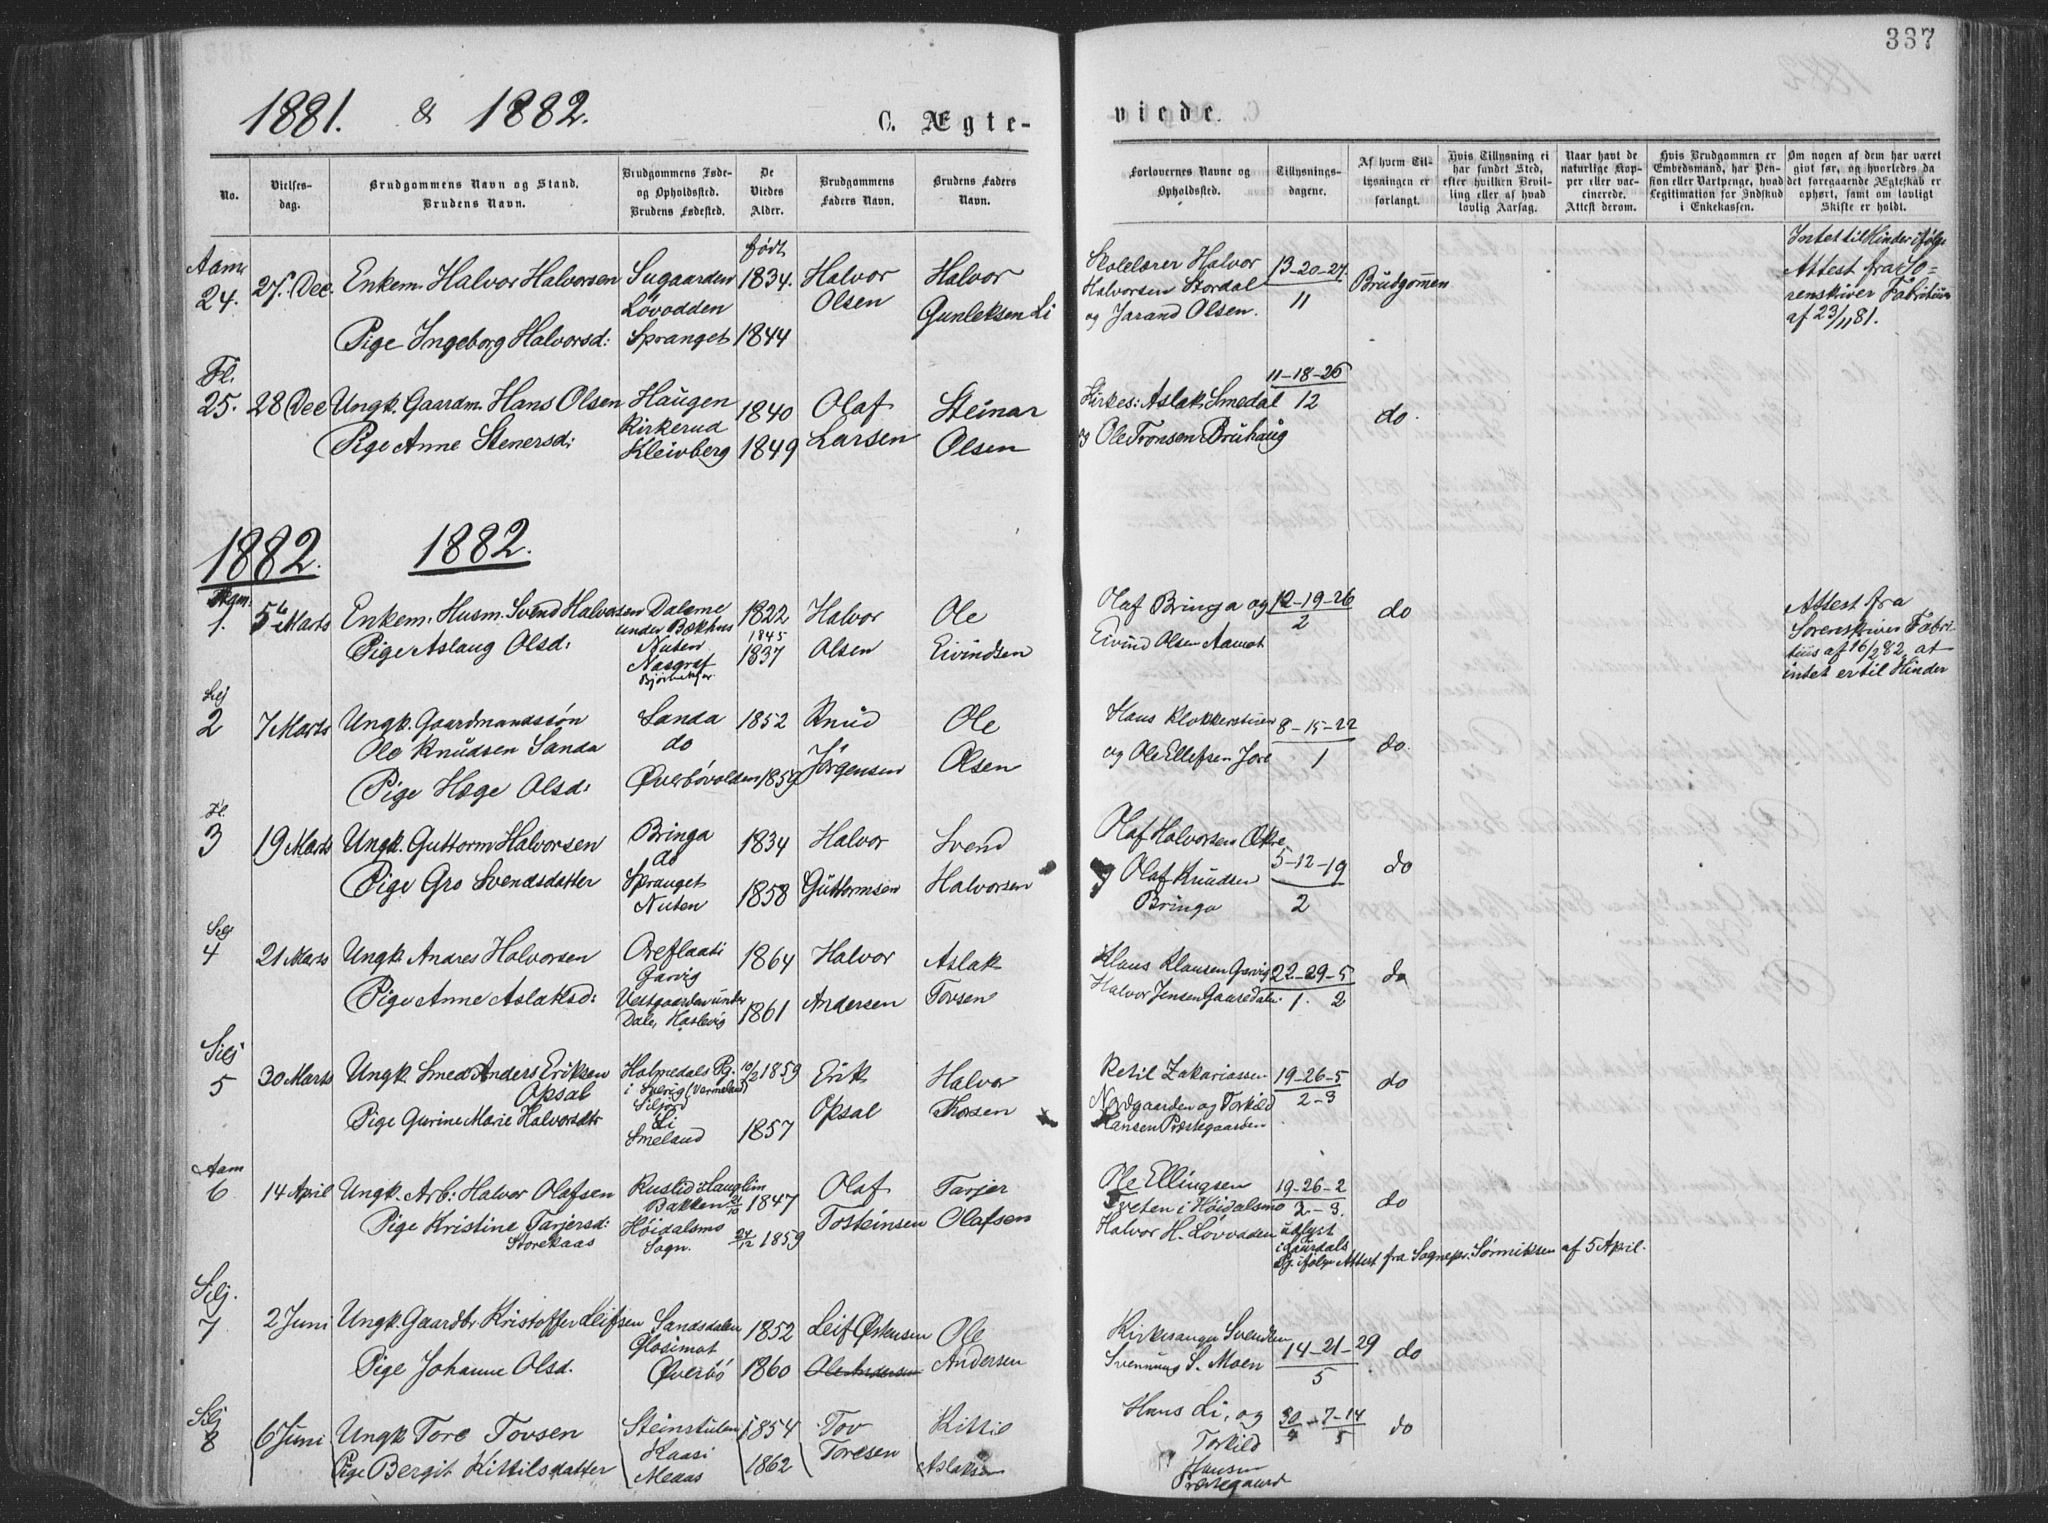 337
1881. & 1882. C. Ægte-
viede.
No.
Vielses-
dag.
Brudgommens Navn og Stand.
Brudens Navn.
Brudgommens Føde-
og Opholdssted.
Brudens Fødested.
De
Viedes
Alder.
Brudgommens
Faders Navn.
Brudens Faders
Navn.
Forlovernes Navne og
Opholdssted.
Tillysnings-
dagene.
Af hvem Til-
lysningen er
forlangt.
Hvis Tillysning ei
har fundet Sted,
efter hvilken Bevil-
ling eller af hvad
lovlig Aarsag.
Naar havt de
naturlige Kop-
per eller vac-
cinerede.
Attest derom.
Hvis Brudgommen er
Embedsmand, har Pen-
sion eller Vartpenge, hvad
Legitimation for Indskud
i Enkekassen.
Om nogen af dem har været
givt før, og hvorledes da
det foregaaende Ægteskab er
ophørt, samt om lovligt
Skifte er holdt.
Aam
24.
27. Dec.
Enkem. Halvor Halvorsen
Pige Ingeborg Halvorsd:
Sugaarden
Lovodden
Spranget
født
1834.
1844
Halvor
Olsen
Halvor
Gunleksen Li
Skolelærer Halvor
Halvorsen Stordal
og Jarand Olsen.
13-20-27
11
Brudgommen
Intet til Hinder ifølge
Attest fra So-
renskriver Fabritius
af 23/11 81.
Fl.
25.
28 Dec
Ungk. Gaardm. Hans Olsen
Pige Anne Stenersd:
Haugen
Kirkerud
Kleivberg
1840
1849
Olaf
Larsen
Steinar
Olsen
Kirkes: Aslak Smedal
og Ole Tronsen Bruhaug
11-18-26
12
do.
1882. 1882.
1.
5te Marts
Enkem. Husm. Svend Halvorsen
Pige Aslaug Olsd:
Dalene
under Bækhus
Nuten
Nasgref
1822
1845
1837
Halvor
Olsen
Ole
Eivindsen
Olaf Bringa og
Eivind Olsen Aamot
12-19-26
2
do
Attest fra
Sorenskriver Fabri-
tius af 16/2 82, at
intet er til Hinder
Selj
2
7 Marts
Ungk. Gaardmandssøn
Ole Knudsen Sanda
Pige Hæge Olsd:
Sanda
do
Øverbøvolden
1852
1859
Knud
Jørgensen
Ole
Olsen
Hans Klokkerstuen
og Ole Ellefsen Jore
8-15-22
1
do.
Fl.
3
19 Marts
Ungk. Guttorm Halvorsen
Pige Gro Svendsdatter
Bringa
do
Spranget
Nuten
1834
1858
Halvor
Guttormsen
Svend
Halvorsen
Olaf Halvorsen Økre
og Olaf Knudsen
Bringa
5-12-19
2
do
Selj
4
21 Marts
Ungk. Andres Halvorsen
Pige Anne Aslaksd:
Oreflaati
Garvig
Vestgaarden under
Dale, Haslevig
1864
1861
Halvor
Andersen
Aslak
Tovsen
Klaus Klausen Garvig
Halvor Jensen Gaaredalen
22-29-5
1. 2
do
Silj
5
30 Marts
Ungk. Smed Anders Eriksen
Opsal
Pige Gurine Marie Halvorsdtr
Holmedals Pg.
i Sverig (Vermeland)
Siljord
Li
Smeland
10/2 1859
1857
Erik
Opsal
Halvor
Thorsen
Ketil Zakariassen
Nordgaarden og Torkild
Hansen Præstegaarden
19-26-5
2-3
do
Aam
6
14 April
Ungk. Arb: Halvor Olafsen
Pige Kristine Tarjersd:
Storekaas
Rustid Hauglim
Bakken
Høidalsmo
Sogn.
21/10 1847
24/12 1859
Olaf
Tosteinsen
Tarjer
Olafsen
Ole Ellingsen
Tveten i Høidalsmo
Halvor H. Lovodden
19-26-2
2-3.
udlyst
i Laurdals
Pg. ifølge Attest fra Sognepr. Sørmiksen af 5 April.
do
Silj.
7
2 Juni
Ungk. Gaardbr Kristoffer Leifsen
Pige Johanne Olsd.
Sandsdalen
Gløsimot
Øverbø
1852
1860
Leif Østensen
Ole Andersen
Ole
Andersen
Kirkesanger Svendsen
Svennung S. Moen
14-21-29
5
do
Silj
8
6 Juni
Ungk Tore Tovsen
Pige Bergit Kittilsdatter
Steinstulen
Kaasi
Meaas
1854
1862
Tov
Toresen
Kittil
Aslaksen
Hans Li, og
Torkild
Hansen
Præstegaard
30/4-7-14/5
do